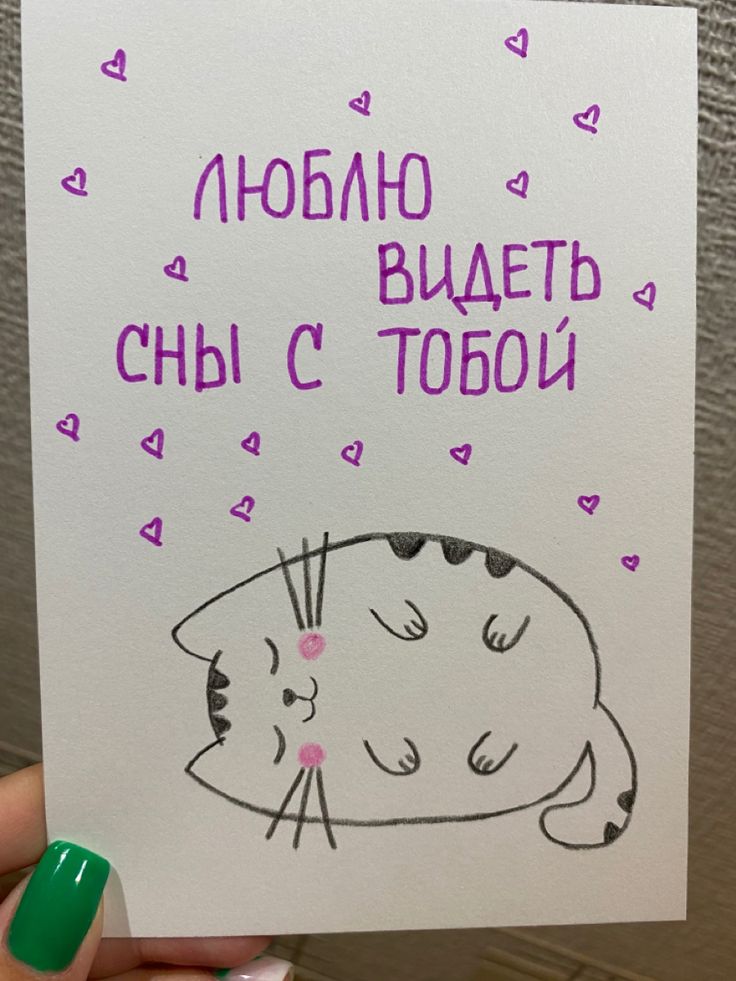 ЛЮБЛЮ
ВИДЕТЬ
СНЫ С ТОБОЙ